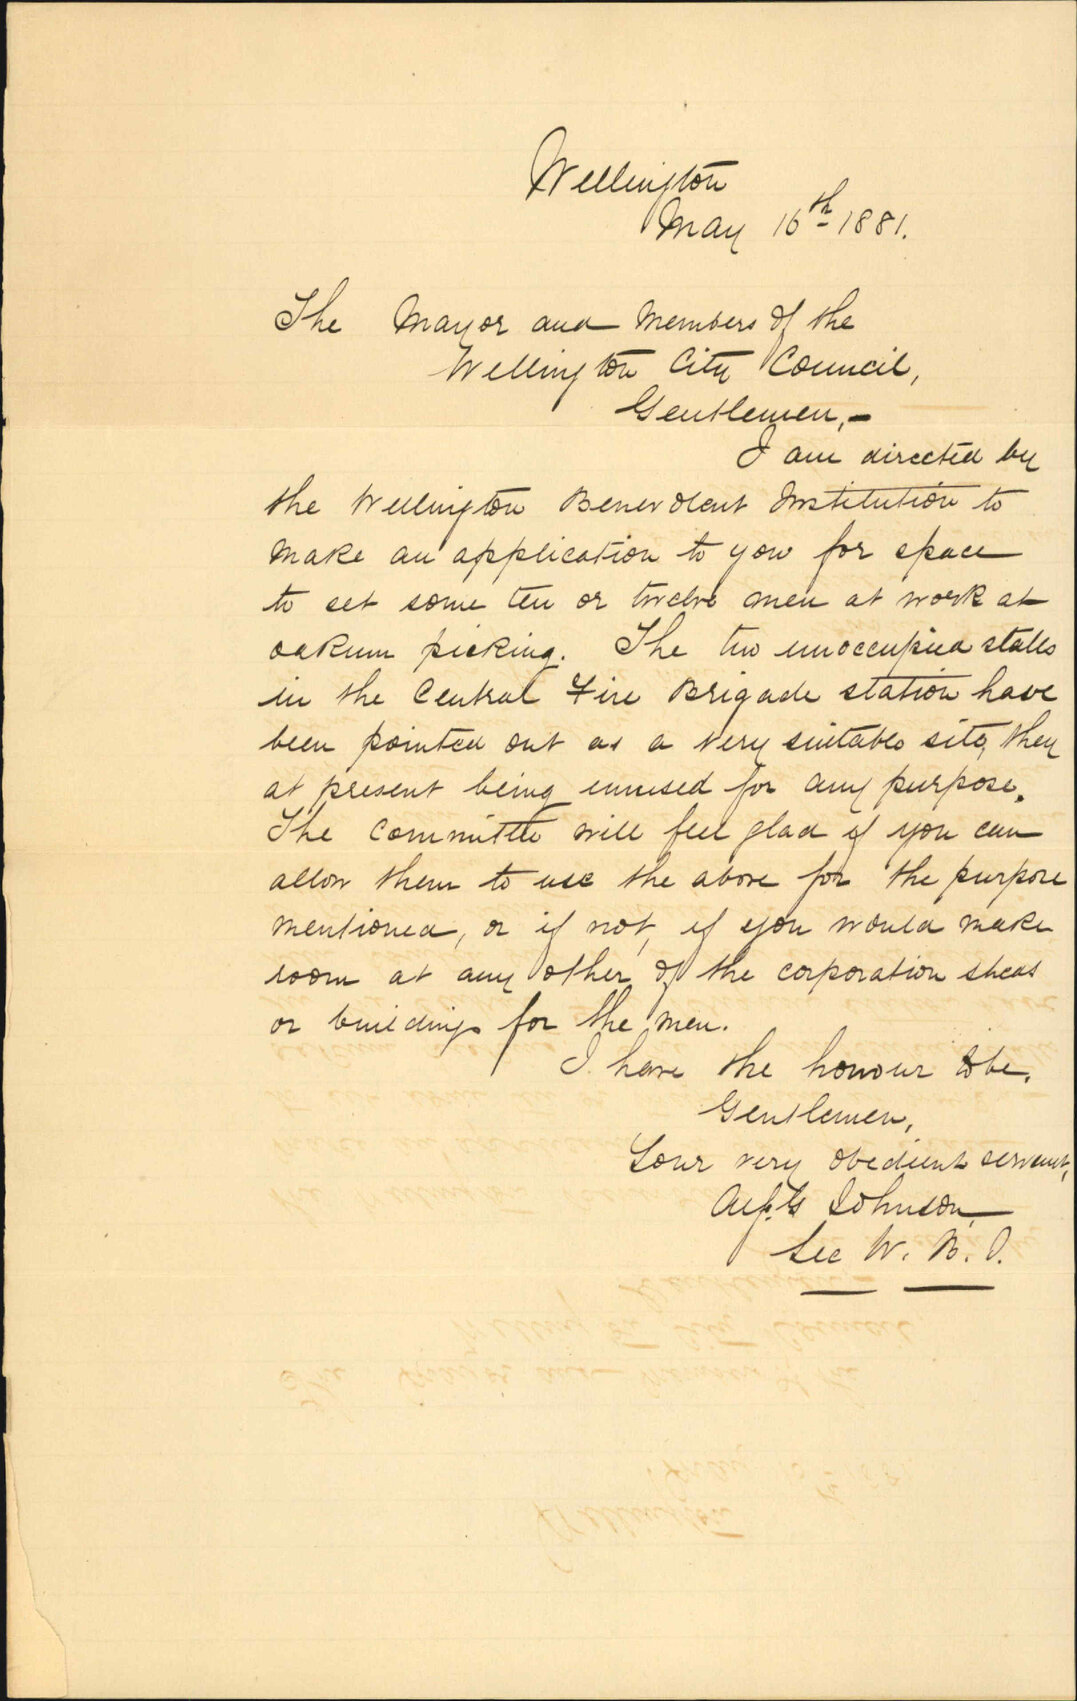 Wellington
May 16th 1881.
The Mayor and Members of the
Wellington City Council,
Gentlemen,-
I am directed by
the Wellington Benevolent Institution to
make an application to you for space
to set some ten or twelve men at work at
oakum picking. The two unoccupied stalls
in the Central Fire Brigade station have
been pointed out as a very suitable site, they
at present being unused for any purpose.
The Committee will feel glad if you can
allow them to use the above for the purpose
mentioned, or if not, if you would make
room at any other of the corporation sheds
or buildings for the men.
I have the honour to be,
Gentlemen,
Your very obedient servant,
Johnson,
Sec W. B. I.